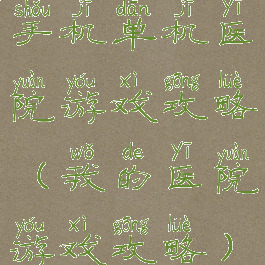 shǒu jī dān jī yī
手机单机医
yuàn yóu xì gōng lüè
院游戏攻略
wǒ de yī yuàn
（我的医院
yóu xì gōng lüè
游戏攻略）